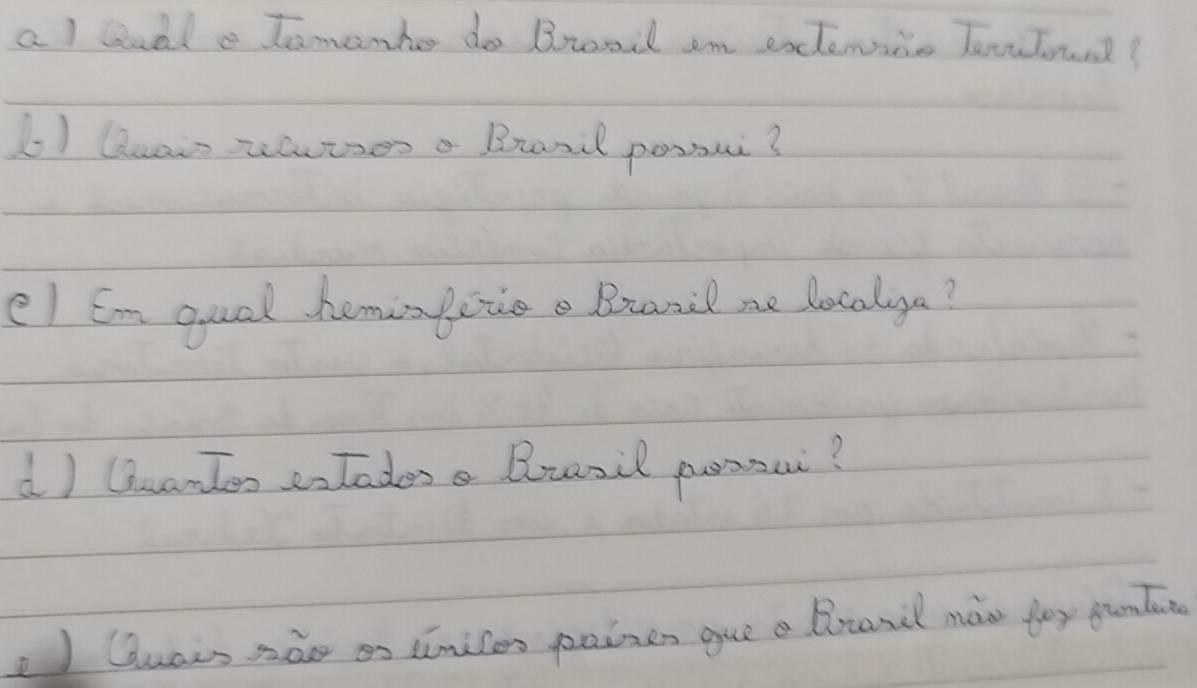 a) Qual o Tamanho do Brasil em extensão Territorial?
b) Quais recursos o Brasil possui?
c) Em qual hemisfério o Brasil se localiza?
d) Quantos estados o Brasil possui?
e) Quais são os únicos países que o Brasil não faz fronteira